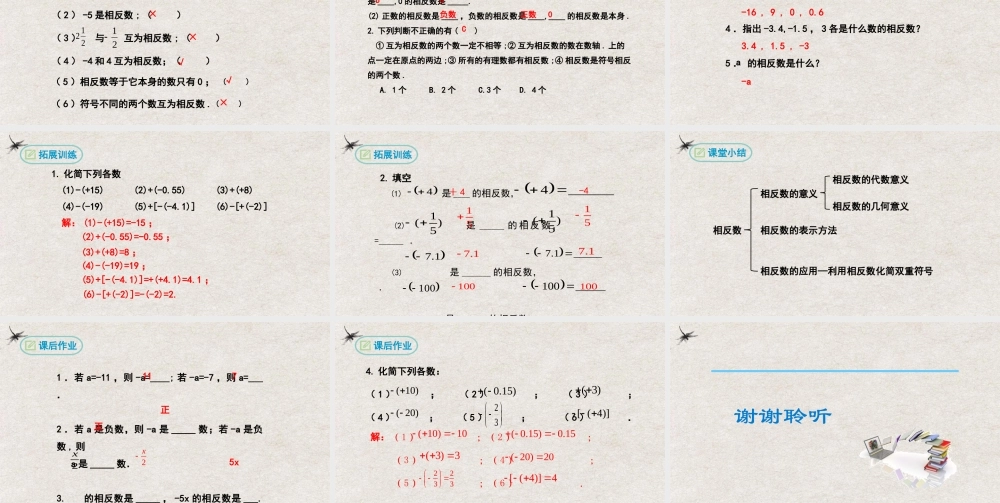 （2） -5 是相反数 ;（ × ）
（3） 2 1/2 与 - 1/2 互为相反数 ;（ × ）
（4） -4 和 4 互为相反数;（ √ ）
（5）相反数等于它本身的数只有 0 ; （ √ ）
（6）符号不同的两个数互为相反数 .（ × ）
(2) 正数的相反数是 负数 ，负数的相反数是 正数 ， 0 的相反数是本身 .
2. 下列判断不正确的有 ( C )
① 互为相反数的两个数一定不相等 ;② 互为相反数的数在数轴 . 上的
点一定在原点的两边 ;③ 所有的有理数都有相反数 ;④ 相反数是符号相反
的两个数 .
A. 1 个 B. 2 个 C.3 个 D. 4 个
-16 ， 9 ， 0 ， 0.6
4 ．指出 -3.4,-1.5 ， 3 各是什么数的相反数?
3.4 ， 1.5 ， -3
5 ．a 的相反数是什么?
-a
拓展训练
1. 化简下列各数
(1)-(+15) (2)+(-0.55) (3)+(+8)
(4)-(-19) (5)+[-(-4.1)] (6)-[+(-2)]
解: (1)-(+15)=-15 ;
(2)+(-0.55)=-0.55 ;
(3)+(+8)=8 ;
(4)-(-19)=19 ;
(5)+[-(-4.1)]=+(+4.1)=4.1 ;
(6)-[+(-2)]=-(-2)=2.
拓展训练
2. 填空
⑴ -(+4) 是 ＋4 的相反数， -(+4)= -4
⑵ -(+1/5) 是 +1/5 的相反数， -(+1/5) = -1/5 .
⑶ -(-7.1) 是 -7.1 的相反数， -(-7.1)= 7.1 .
-(-100) -100 -(-100)= 100
课堂小结
相反数
相反数的意义
相反数的代数意义
相反数的几何意义
相反数的表示方法
相反数的应用—利用相反数化简双重符号
课后作业
1 ．若 a=-11 ，则 -a= 11 ; 若 -a=-7 ，则 a= 7 .
正
2 ．若 a 是负数，则 -a 是 ____ 数；若 -a 是负
数，则
是 ____ 数．
3. x/2 的相反数是 -x/2 ，-5x 的相反数是 5x .
课后作业
4. 化简下列各数：
（1） -(+10) ； （2） +(-0.15) ； （3） +(+3) ；
（4） -(-20) ； （5） -(-2/3) ； （6） -[-(+4)] ．
解: （1） -(+10)=-10 ； （2） +(-0.15)=-0.15 ；
（3） +(+3)=3 ； （4） -(-20)=20 ；
（5） -(-2/3)=2/3 ； （6） -[-(+4)]=4 .
谢谢聆听